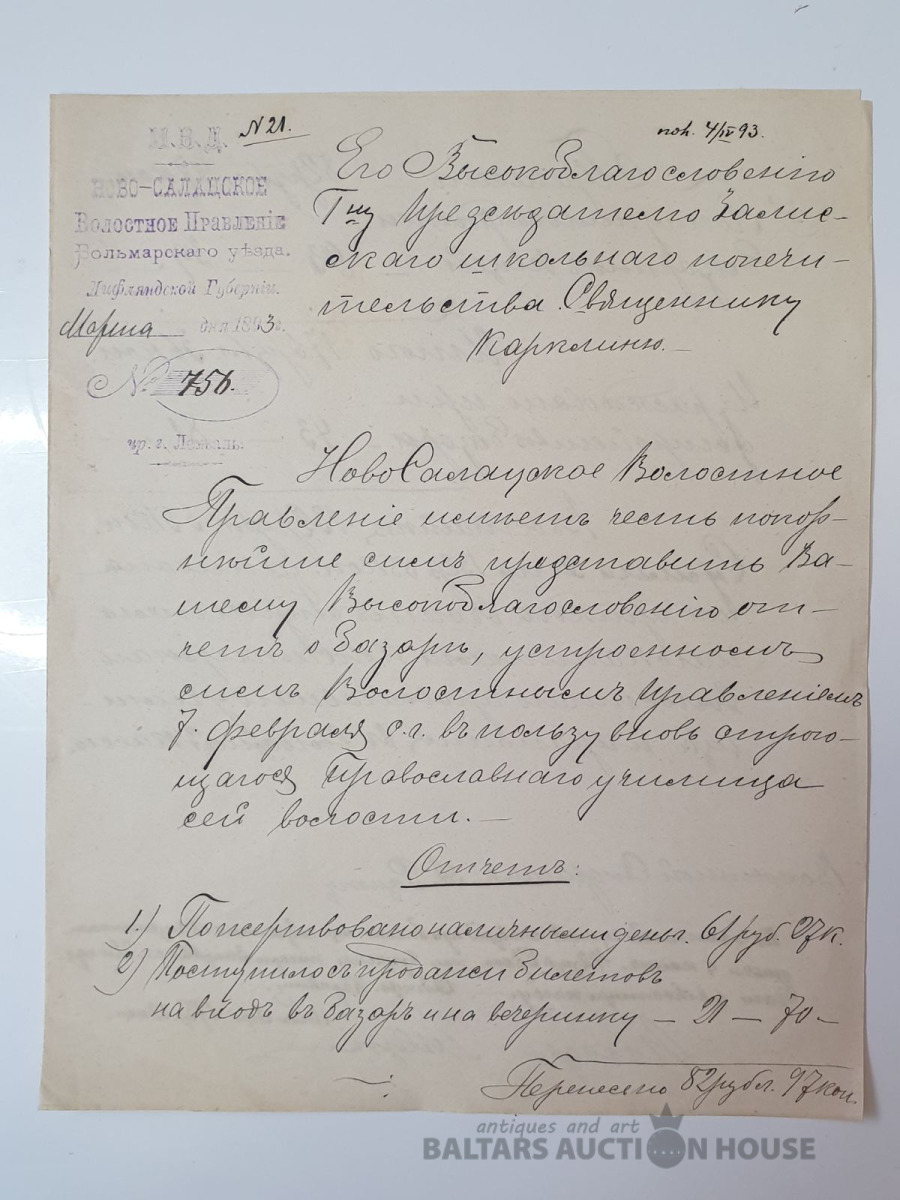 М.В.Д.
№ 21.
пол. 4/IV 93.
НОВО-САЛАЦСКОЕ
Волостное Правленіе
Вольмарскаго уѣзда.
Лифляндской Губерніи.
Марта дня 1893 г.
№ 756.
пр. г. Лемзаль.
Его Высокоблагословенію
Гну Предсѣдателю Залис-
скаго школьнаго попечи-
тельства Священнику
Карклиню. —
НовоСалацское Волостное
Правленіе имѣетъ честь покор-
нѣйше симъ представить Ва-
шему Высокоблагословенію от-
четъ о базарѣ, устроенномъ
симъ Волостнымъ Правленіемъ
7. февраля с.г. въ пользу вновь строю-
щагося Православнаго училища
сей волости. —
Отчетъ:
1.) Пожертвовано наличными деньг. 61 руб. 27 к.
2) Поступило съ продажи билетовъ
на входъ въ базаръ и на вечеринку — 21 — 70 —
Перенесено 82 рубл. 97 коп.
antiques and art
BALTARS AUCTION HOUSE